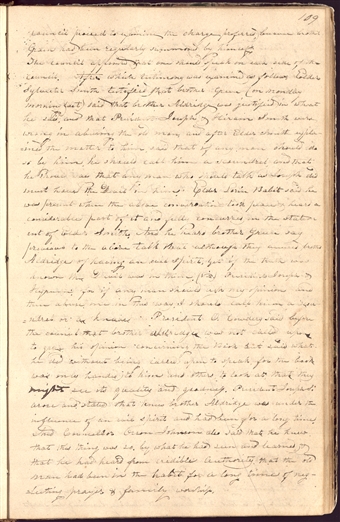 109
council proceed to examine the charge preferred because brother
Green has been regularly summoned by himself
The council agreed that one should speak on each side of the
council. After which testimony was examined as follows Elder
Sylvester Smith testified that brother Green (on monday
morning last) said that brother Aldridge was justified in what
he said, and that President Joseph & Hiram Smith were
wrong in abusing the old man, and after Elder Smith explai-
ned the matter to him, said that if any man should do
so by him he should call him a scoundrel and that
he should say that any man who should talk as Joseph did
must have the Devil in him. Elder Lorin Babbit said he
was present when the above conversation took place & heard a
considerable part of it and fully concurs in the statem-
ent of Elder Smith. And he heard brother Green say
previous to the above talk that although they accused brother
Aldridge of having an evil spirit, yet if the truth was
known the Devil was in them, for
if any man should
them above me in this way I should call him a scou-
ndrel or a knave. President O. Cowdery said before
the council that brother Aldridge was not called upon
to give his opinion concerning the Book but said what
he did without being called upon to speak for the book
was only handed to him and others to look at that they
might see its quality and
arose and stated that knew brother Aldridge was under the
influence of an evil spirit and had been for a long time.
Counsellor Orson Johnson also said that he knew
that this thing was so, by what he had seen and learned &
that he had heard from credible authority that the old
man had been in the habit for a long time of neg-
lecting prayer & family worship.